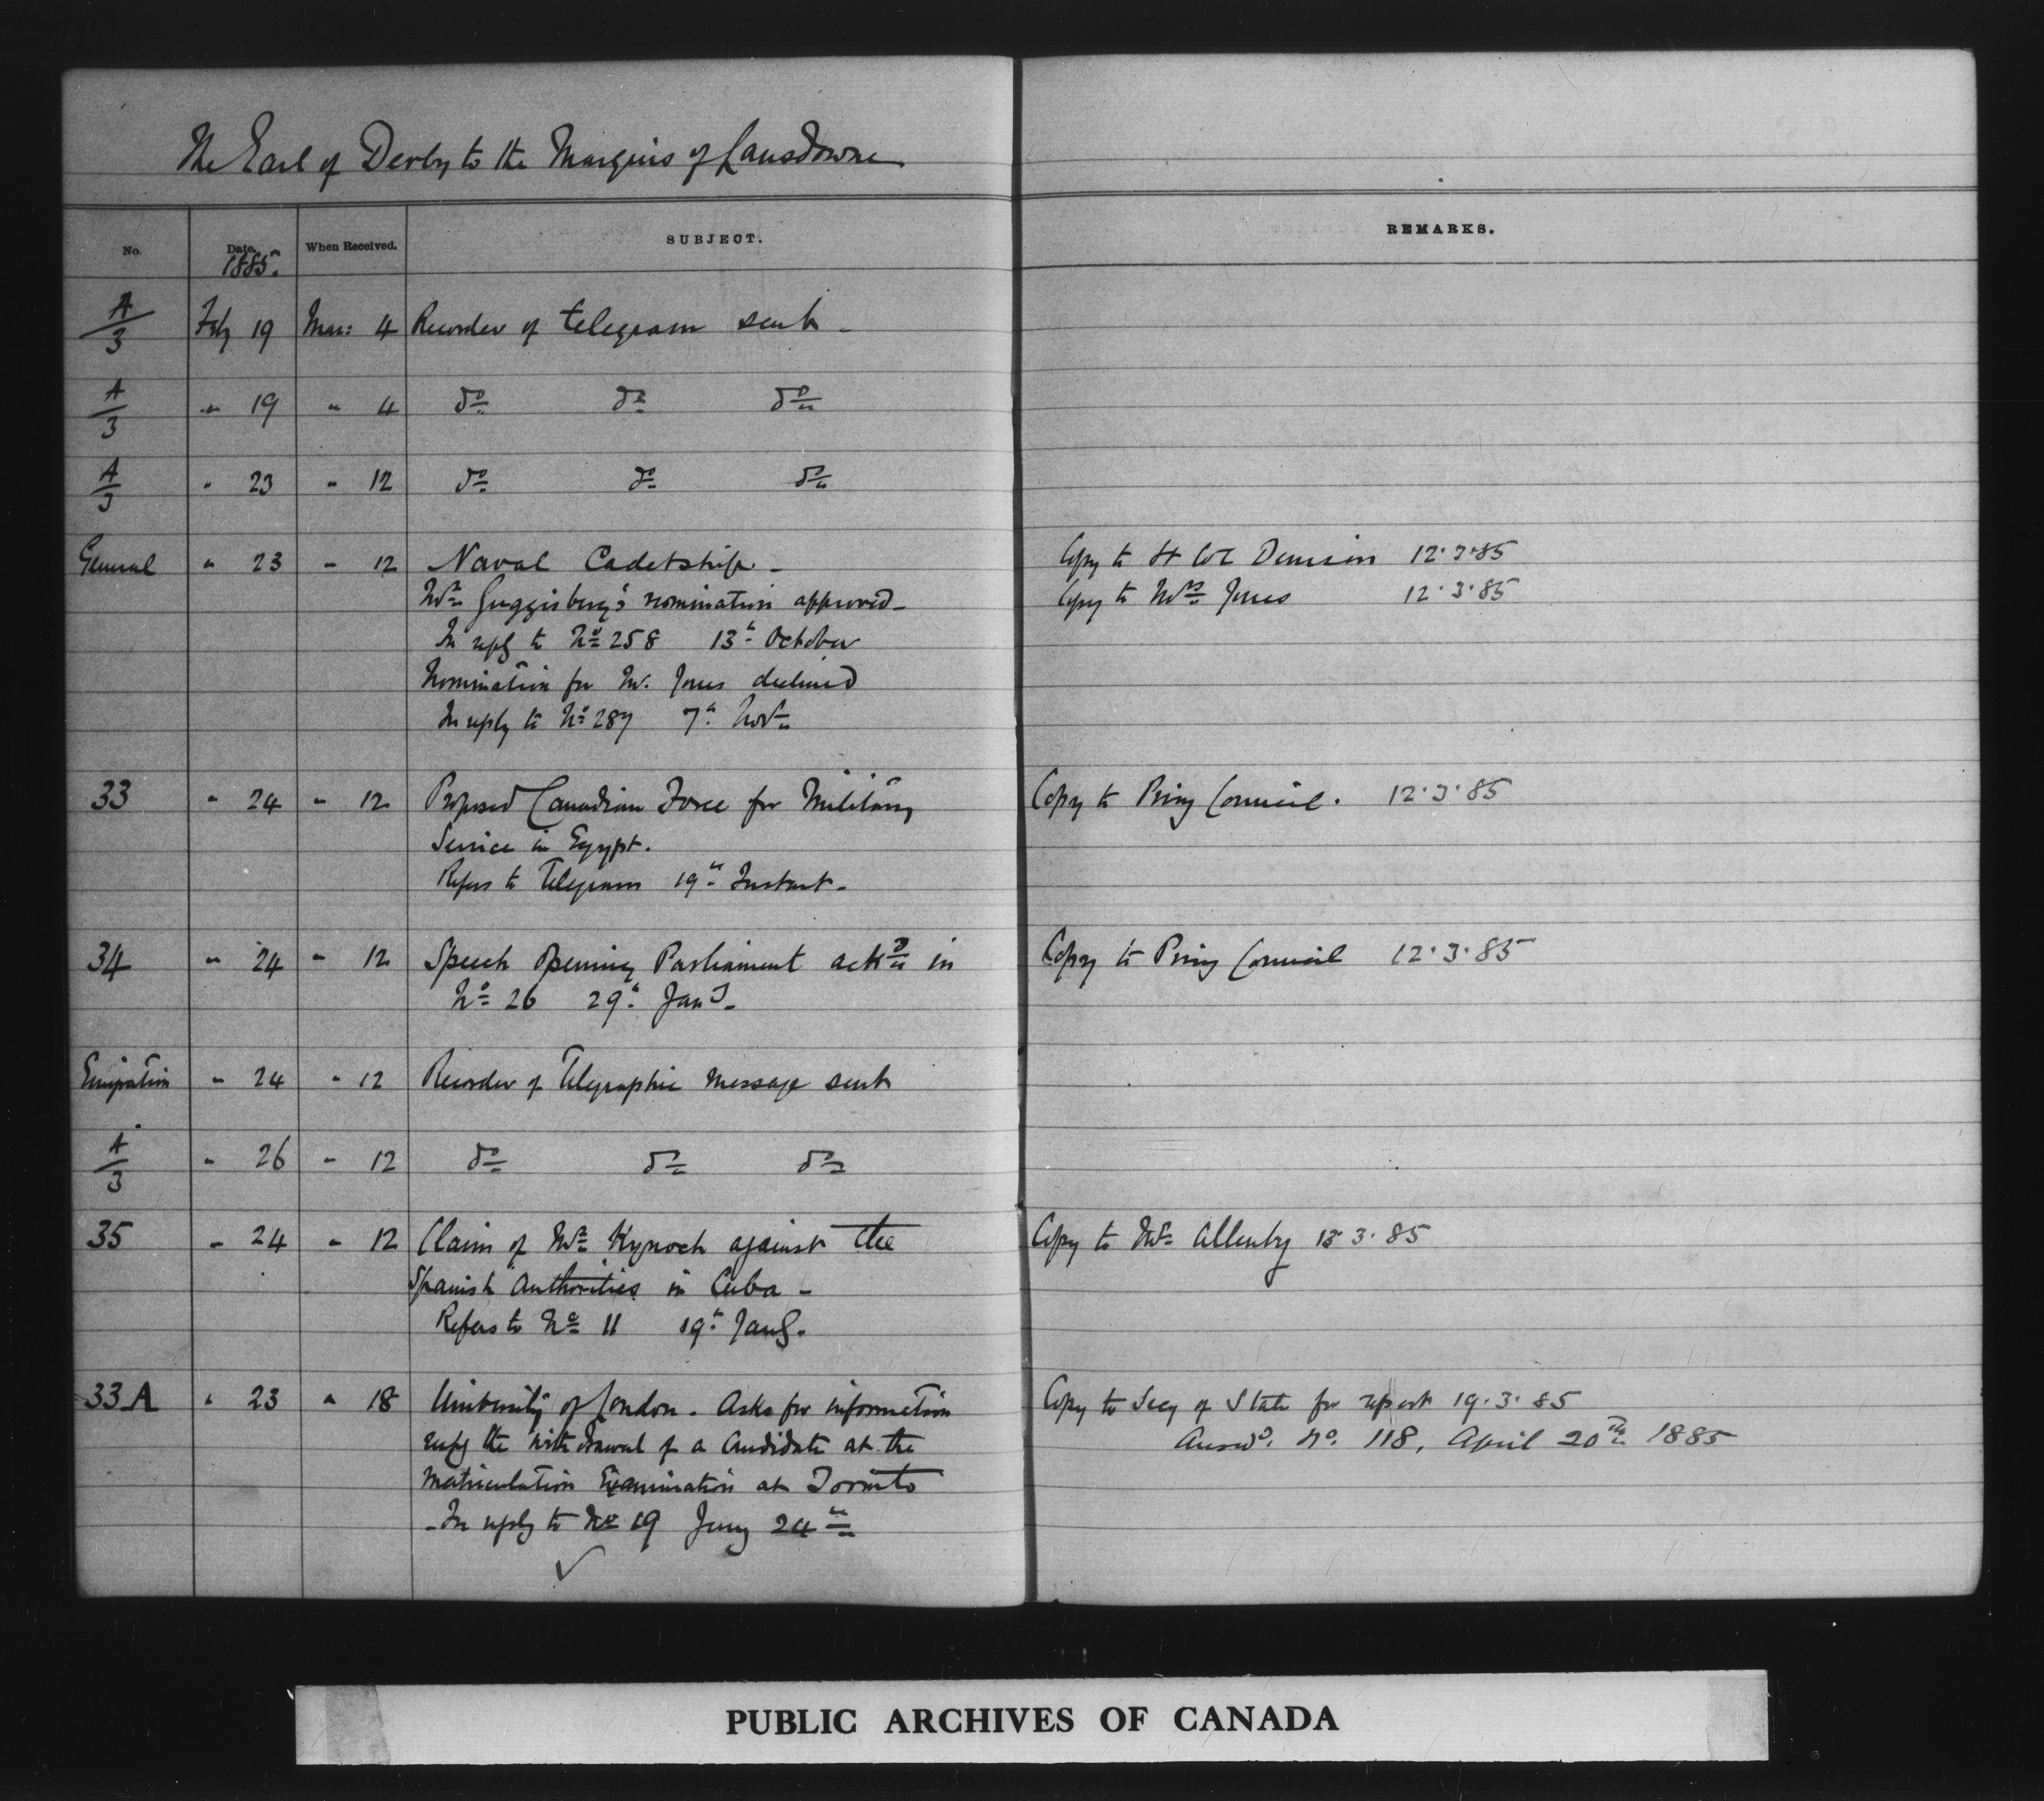 The Earl of Derby to the Marquis of Lansdowne
No. Date. When Received. SUBJECT. REMARKS.
1885.
A/3 Feby 19 Mar: 4 Recorder of telegram sent -
A/3 " 19 " 4 do do do
A/3 " 23 " 12 do do do
General " 23 " 12 Naval Cadetship - Copy to Lt Col Denison 12.3.85
Mr Guggisberg's nomination approved - Copy to Mrs Jones 12.3.85
In reply to No 258 13th October
Nomination for Mr. Jones declined
In reply to No 287 7th Novr
33 " 24 " 12 Proposed Canadian Force for Military Copy to Privy Council. 12.3.85
Service in Egypt.
Refers to Telegram 19th Instant -
34 " 24 " 12 Speech opening Parliament ackd in Copy to Privy Council 12.3.85
No 26 29th Jany -
Emigration " 24 " 12 Recorder of Telegraphic message sent
A/3 " 26 " 12 do do do
35 " 24 " 12 Claim of Mr Kynoch against the Copy to Mr Allenby 13.3.85
Spanish Authorities in Cuba -
Refers to No 11 19th Jany.
33A " 23 " 18 University of London. Asks for information Copy to Secy of State for report 19.3.85
respg the withdrawal of a Candidate at the Answd. No. 118, April 20th 1885
Matriculation Examination at Toronto
- In reply to No 19 Jany 24th
✓
PUBLIC ARCHIVES OF CANADA